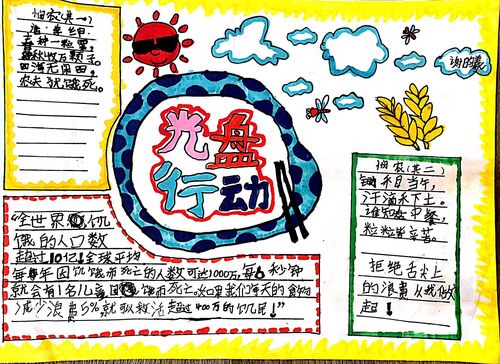 悯农(其一)
唐 李绅
春种一粒粟,
秋收万颗子.
四海无闲田,
农夫犹饿死.
光盘
行动
悯农(其二)
锄禾日当午,
汗滴禾下土.
谁知盘中餐,
粒粒皆辛苦.
拒绝舌尖上
的浪费从我做
起!
"全世界饥
饿的人口数
超过10亿!全球平均
每年因饥饿而死亡的人数可达1000万,每6秒钟
就会有1名儿童因饿而死亡.如果我们每天的食物
减少浪费5%就可以救活超过400万的饥民!"